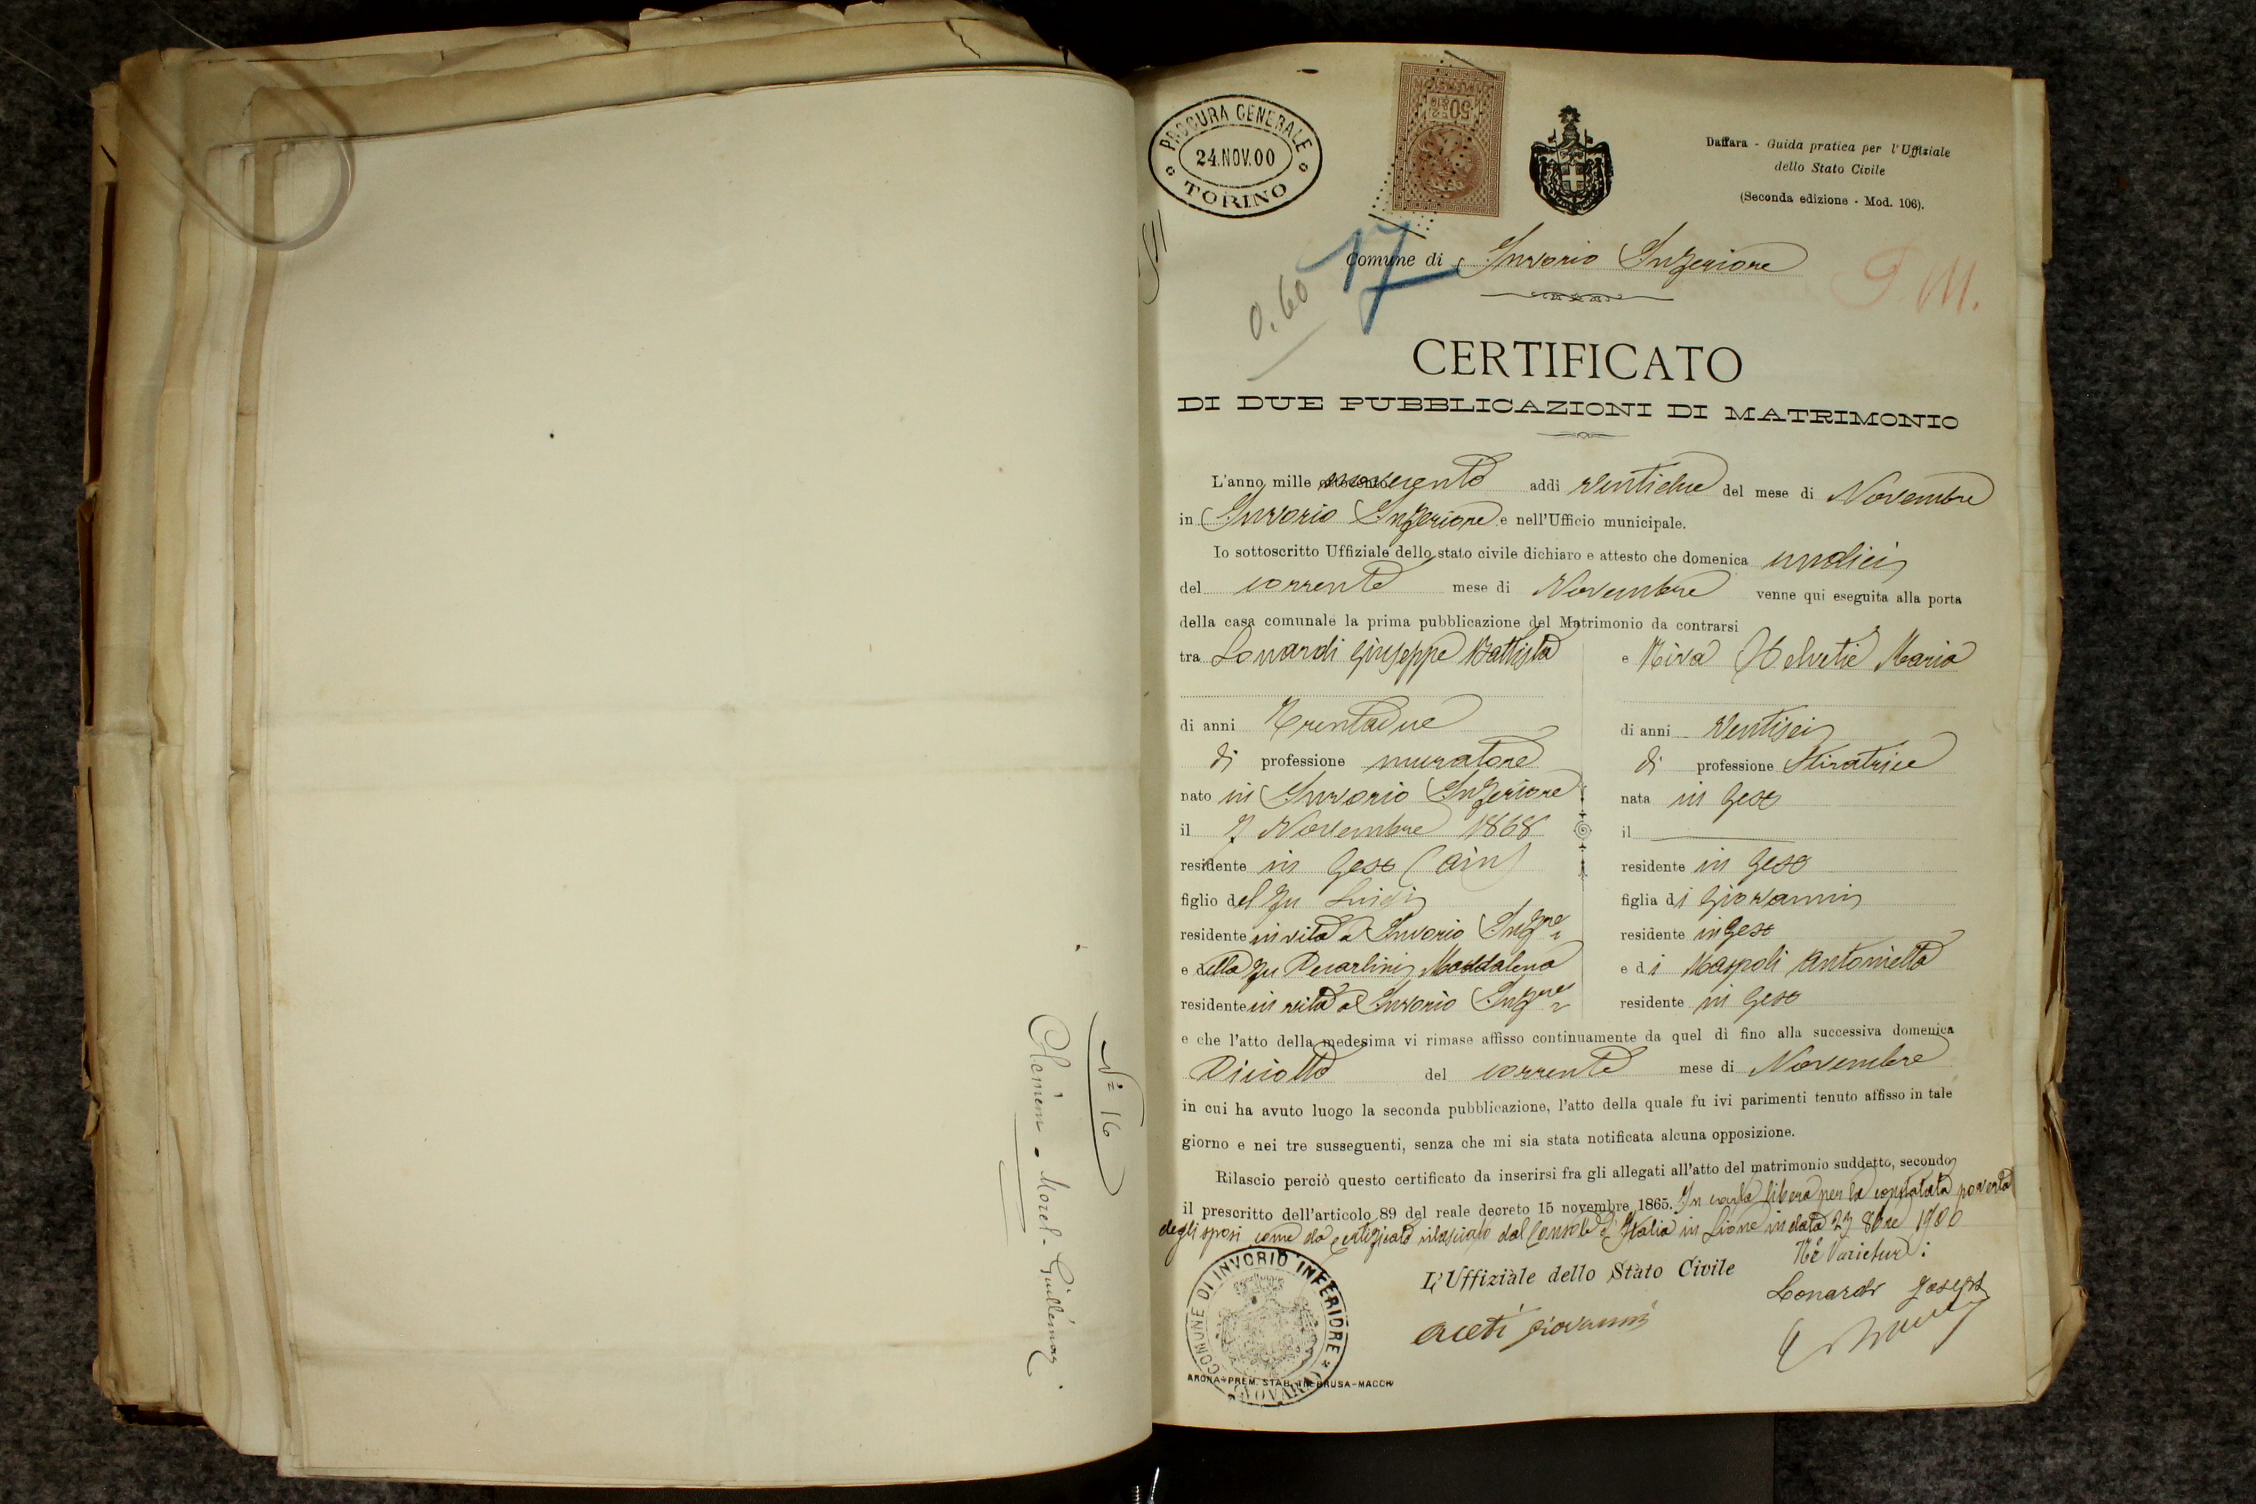 N° 16
Clémem - Morel - Guillémaz
PROCURA GENERALE
24.NOV.00
TORINO
Daffara - Guida pratica per l'Uffiziale
dello Stato Civile
(Seconda edizione - Mod. 106).
17
0.60
Comune di Invorio Inferiore
P. M.
CERTIFICATO
DI DUE PUBBLICAZIONI DI MATRIMONIO
L'anno mille novecento addì ventidue del mese di Novembre
in Invorio Inferiore e nell'Ufficio municipale.
Io sottoscritto Uffiziale dello stato civile dichiaro e attesto che domenica undici
del corrente mese di Novembre venne qui eseguita alla porta
della casa comunale la prima pubblicazione del Matrimonio da contrarsi
tra Lonardi Giuseppe Battista e Riva Helvetie Maria
di anni Trentadue di anni Ventisei
di professione muratore di professione Stiratrice
nato in Invorio Inferiore nata in Gex
il 7 Novembre 1868 il
residente in Gex (Ain) residente in Gex
figlio del fu Luigi figlia di Giovanni
residente in vita a Invorio Infre residente in Gex
e della fu Decarlini Maddalena e di Maspoli Antonietta
residente in vita a Invorio Infre residente in Gex
e che l'atto della medesima vi rimase affisso continuamente da quel dì fino alla successiva domenica
Diciotto del corrente mese di Novembre
in cui ha avuto luogo la seconda pubblicazione, l'atto della quale fu ivi parimenti tenuto affisso in tale
giorno e nei tre susseguenti, senza che mi sia stata notificata alcuna opposizione.
Rilascio perciò questo certificato da inserirsi fra gli allegati all'atto del matrimonio suddetto, secondo
il prescritto dell'articolo 89 del reale decreto 15 novembre 1865. In carta libera per la constatata povertà
degli sposi come da certificato rilasciato dal Console d'Italia in Lione in data 23 8bre 1900
Ne Varietur :
L'Uffiziale dello Stato Civile
Lonardi Joseph
Aceti Giovanni
COMUNE DI INVORIO INFERIORE
(NOVARA)
ARONA-PREM. STAB. TIP. BRUSA-MACCHI